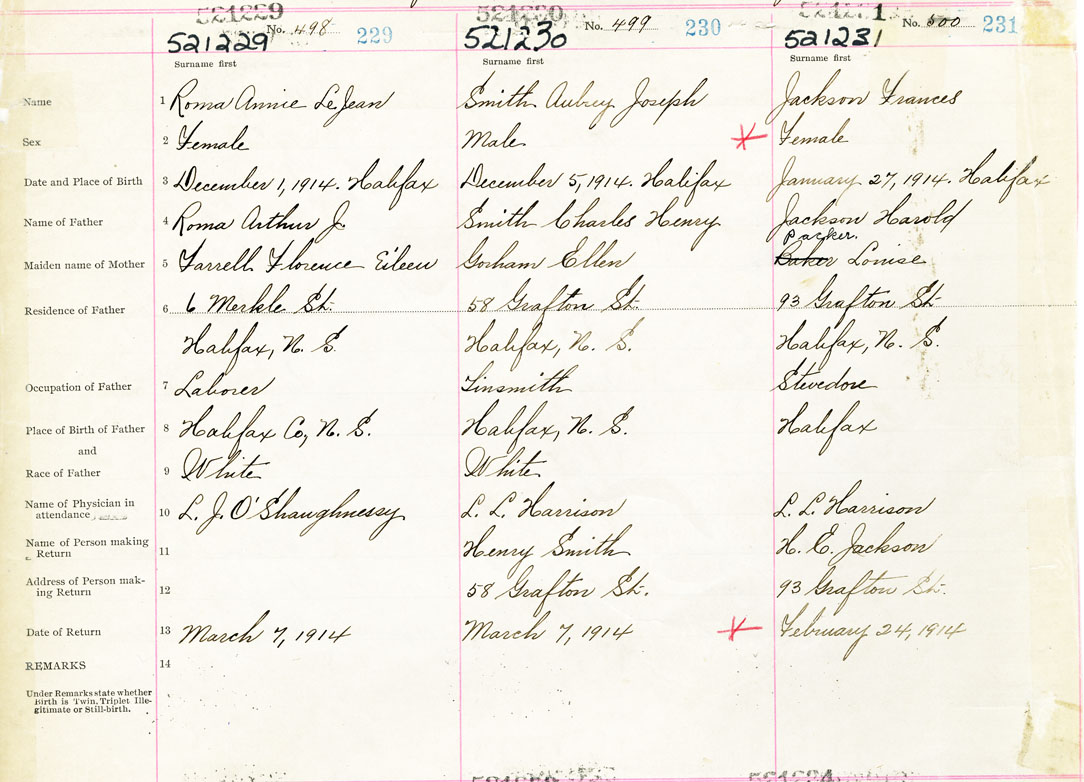 521229 521230
No. 498 229 No. 499 230 No. 500 231
521229 521230 521231
Surname first Surname first Surname first
Name 1 Roma Annie LeJean Smith Aubrey Joseph Jackson Frances
Sex 2 Female Male Female
Date and Place of Birth 3 December 1, 1914. Halifax December 5, 1914. Halifax January 27, 1914. Halifax
Name of Father 4 Roma Arthur J. Smith Charles Henry Jackson Harold
Packer.
Maiden name of Mother 5 Farrell Florence Eileen Gorham Ellen Baker Louise
Residence of Father 6 6 Merkle St. 58 Grafton St. 93 Grafton St.
Halifax, N. S. Halifax, N. S. Halifax, N. S.
Occupation of Father 7 Laborer Tinsmith Stevedore
Place of Birth of Father 8 Halifax Co, N. S. Halifax, N. S. Halifax
and
Race of Father 9 White White
Name of Physician in
attendance 10 L. J. O'Shaughnessy L. L. Harrison L. L. Harrison
Name of Person making
Return 11 Henry Smith H. E. Jackson
Address of Person mak-
ing Return 12 58 Grafton St. 93 Grafton St.
Date of Return 13 March 7, 1914 March 7, 1914 February 24, 1914
REMARKS 14
Under Remarks state whether
Birth is Twin, Triplet Ille-
gitimate or Still-birth.